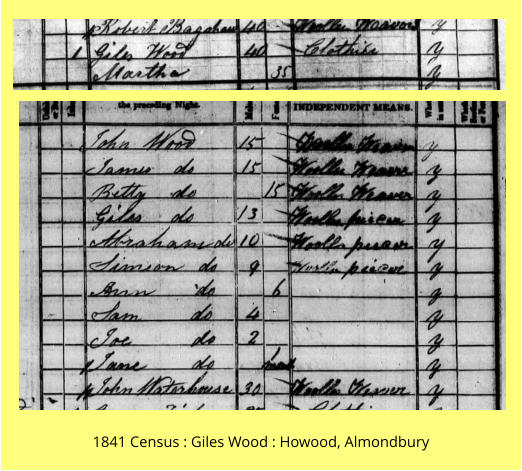 Robert Bagshaw 40 Woollen Weaver y
1 Giles Wood 40 Clothier y
Martha 35 y
the preceding Night. INDEPENDENT MEANS.
John Wood 15 Woollen Weaver y
James do 15 Woollen Weaver y
Betty do 15 Woollen Weaver y
Giles do 13 Woollen piecer y
Abraham do 10 Woollen piecer y
Simeon do 9 Woollen piecer y
Ann do 6 y
Sam do 4 y
Joe do 2 y
Jane do y
John Waterhouse 30 Woollen Weaver y
1841 Census : Giles Wood : Howood, Almondbury